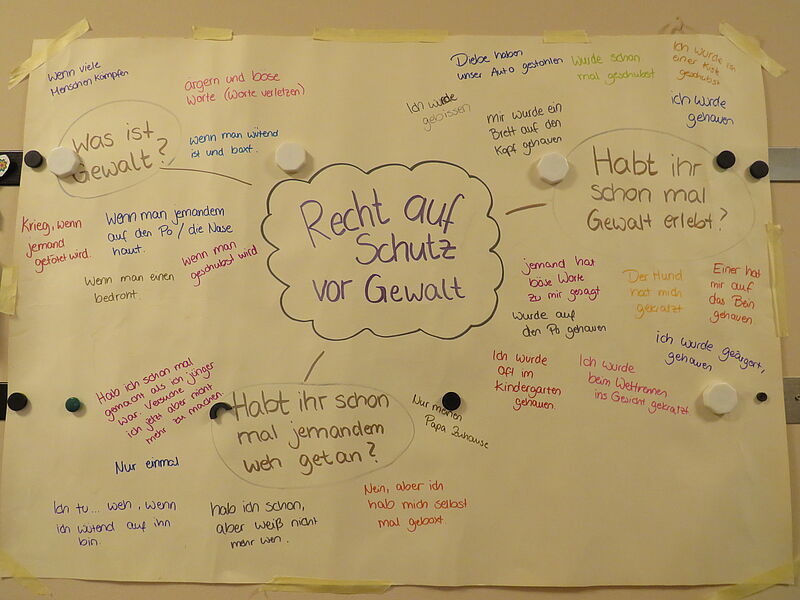 Recht auf
Schutz
vor Gewalt
Was ist
Gewalt?
Wenn viele
Menschen kämpfen
ärgern und böse
Worte (Worte verletzen)
Wenn man wütend
ist und boxt.
Krieg, wenn
jemand
getötet wird.
Wenn man jemandem
auf den Po / die Nase
haut.
Wenn man
geschubst wird
Wenn man einen
bedroht.
Habt ihr
schon mal
Gewalt erlebt?
Diebe haben
unser Auto gestohlen
Wurde schon
mal geschubst
Ich wurde in
einer Kiste
geschubst
Ich wurde
gebissen
Mir wurde ein
Brett auf den
Kopf gehauen
ich wurde
gehauen
jemand hat
böse Worte
zu mir gesagt
Der Hund
hat mich
gekratzt
Einer hat
mir auf
das Bein
gehauen
wurde auf
den Po gehauen
ich wurde geärgert,
gehauen
Ich wurde
oft im
Kindergarten
gehauen.
Ich wurde
beim Wettrennen
ins Gesicht gekratzt
Habt ihr schon
mal jemandem
weh getan?
Hab ich schon mal
gemacht als ich jünger
war. Versuche
ich jetzt aber nicht
mehr zu machen.
Nur meinen
Papa Zuhause
Nur einmal
Ich tu... weh, wenn
ich wütend auf ihn
bin.
hab ich schon,
aber weiß nicht
mehr wen.
Nein, aber ich
hab mich selbst
mal geboxt.